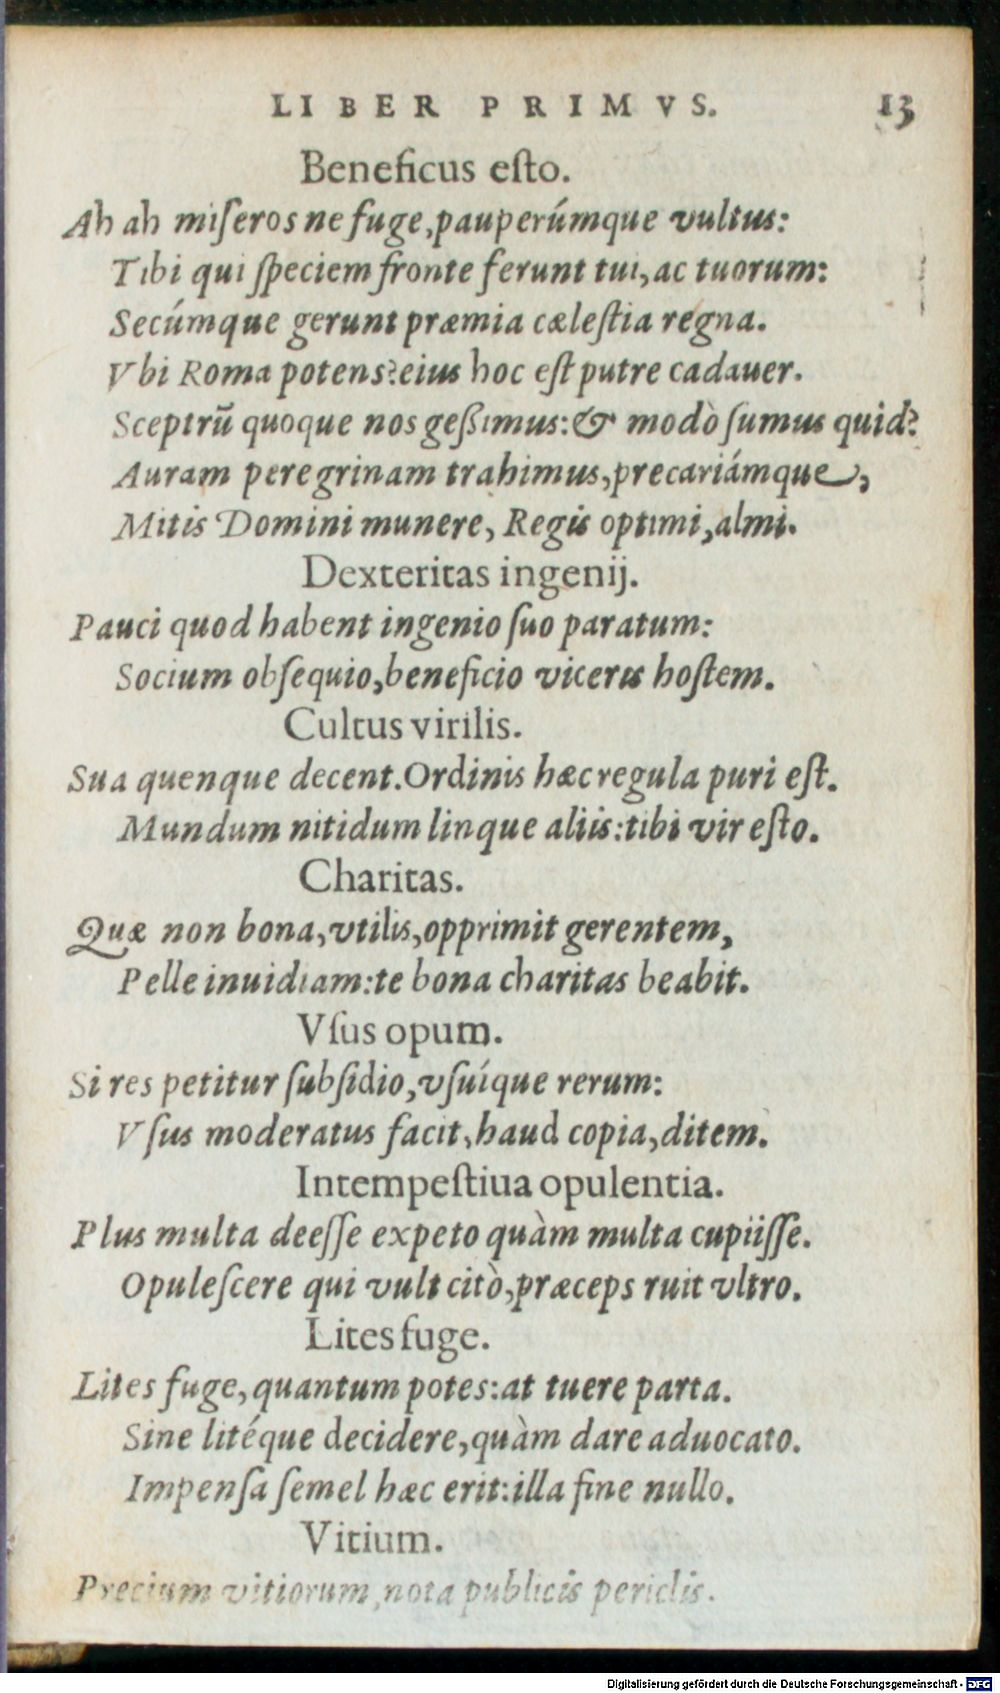 LIBER PRIMVS. 13
Beneficus eſto.
Ah ah miſeros ne fuge, pauperúmque vultus:
Tibi qui ſpeciem fronte ferunt tui, ac tuorum:
Secúmque gerunt præmia cæleſtia regna.
Vbi Roma potens? eius hoc eſt putre cadauer.
Sceptrū quoque nos geßimus: & modò ſumus quid?
Auram peregrinam trahimus, precariámque,
Mitis Domini munere, Regis optimi, almi.
Dexteritas ingenij.
Pauci quod habent ingenio ſuo paratum:
Socium obſequio, beneficio viceris hoſtem.
Cultus virilis.
Sua quenque decent. Ordinis hæc regula puri eſt.
Mundum nitidum linque aliis: tibi vir eſto.
Charitas.
Quæ non bona, vtilis, opprimit gerentem,
Pelle inuidiam: te bona charitas beabit.
Vſus opum.
Si res petitur ſubſidio, vſuíque rerum:
Vſus moderatus facit, haud copia, ditem.
Intempeſtiua opulentia.
Plus multa deeſſe expeto quàm multa cupiiſſe.
Opuleſcere qui vult citò, præceps ruit vltro.
Lites fuge.
Lites fuge, quantum potes: at tuere parta.
Sine litéque decidere, quàm dare aduocato.
Impenſa ſemel hæc erit: illa fine nullo.
Vitium.
Precium vitiorum, nota publicis periclis.
Digitalisierung gefördert durch die Deutsche Forschungsgemeinschaft - DFG